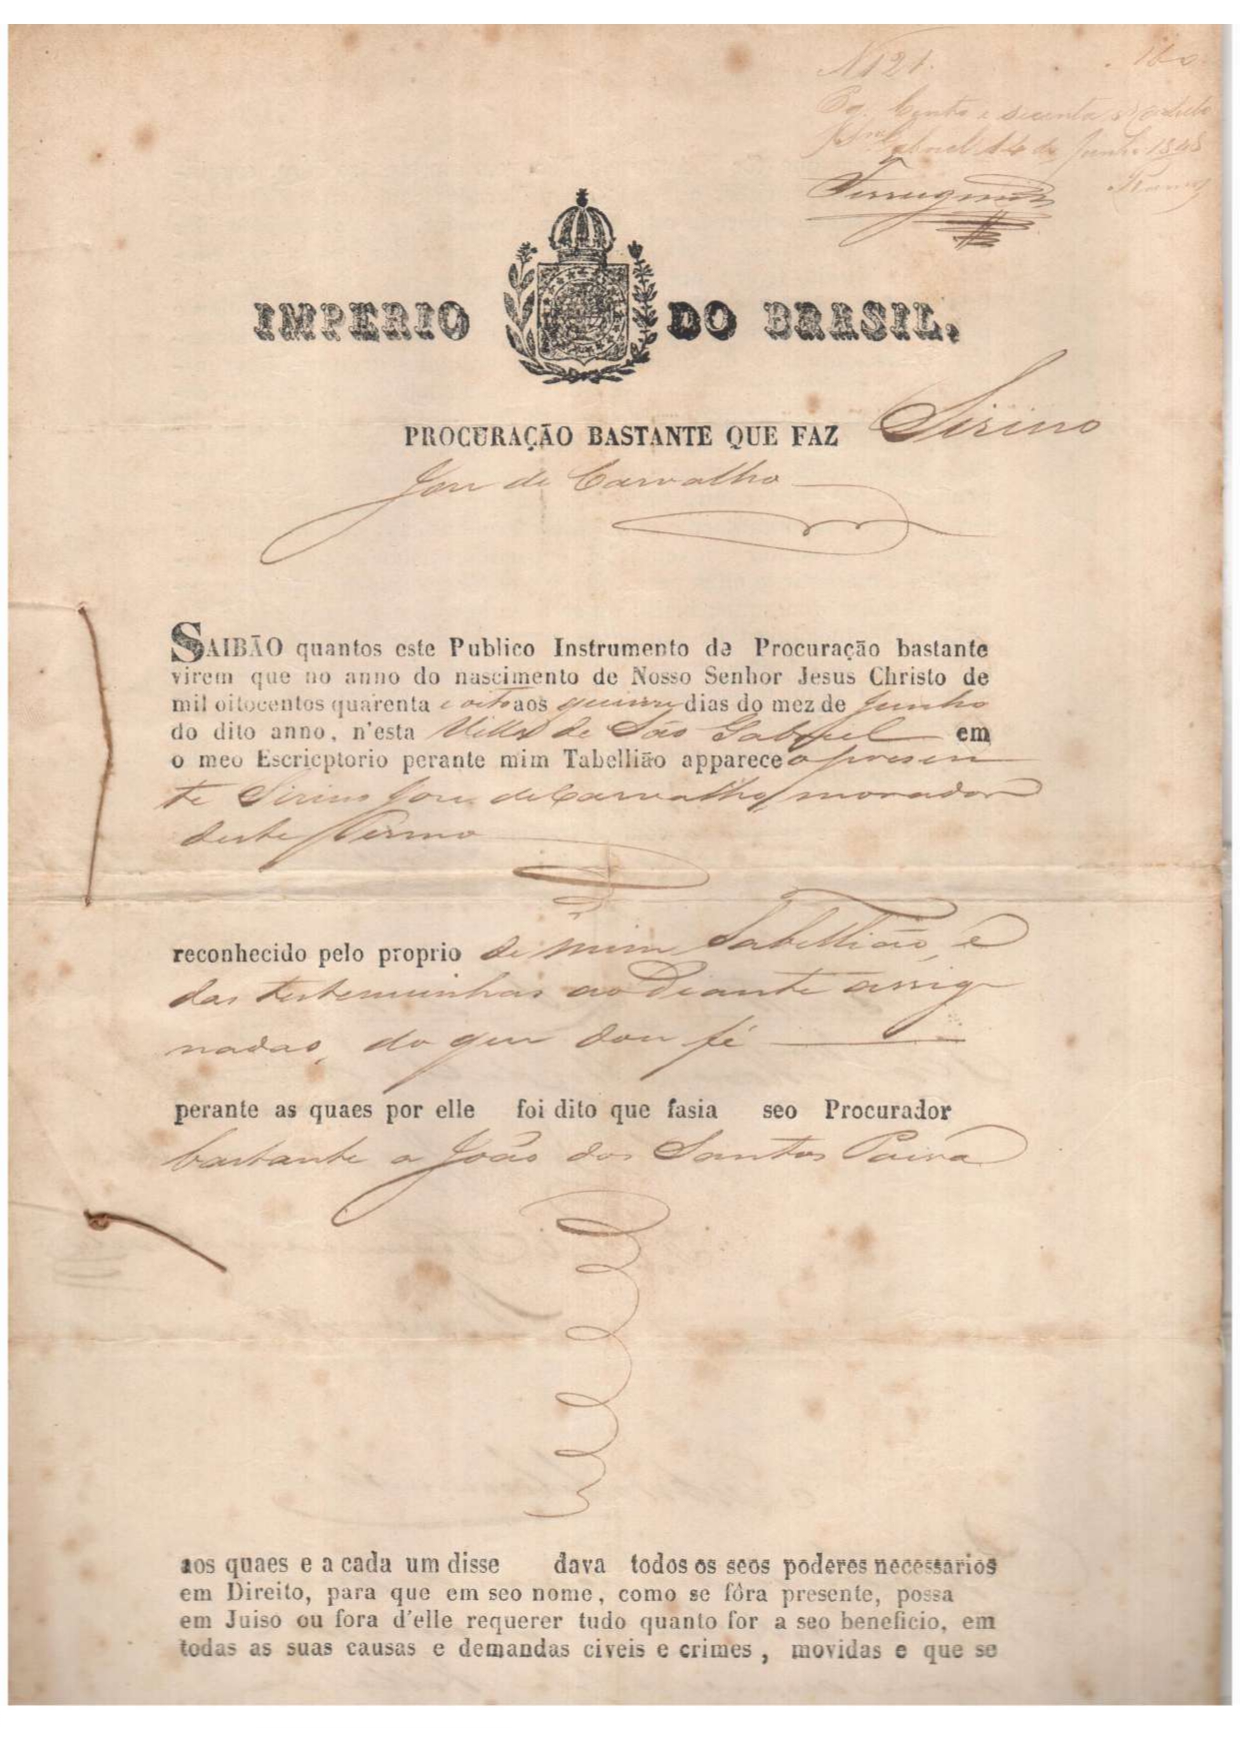 N 121. 160
Pg. Cento e secenta reis
Gabriel 14 de Junho 1848
Ramos
IMPERIO DO BRASIL,
PROCURAÇÃO BASTANTE QUE FAZ Sirino
Joze de Carvalho
SAIBÃO quantos este Publico Instrumento de Procuração bastante
virem que no anno do nascimento de Nosso Senhor Jesus Christo de
mil oitocentos quarenta e oito aos quinze dias do mez de Junho
do dito anno, n'esta Villa de São Gabriel em
o meo Escricptorio perante mim Tabellião apparece o prezen
te Sirino Joze de Carvalho, morador
deste Termo
reconhecido pelo proprio de mim Tabellião, e
das testemunhas ao diante assig
nadas, do que dou fé
perante as quaes por elle foi dito que fasia seo Procurador
bastante a João dos Santos Paiva
aos quaes e a cada um disse dava todos os seos poderes necessarios
em Direito, para que em seo nome, como se fôra presente, possa
em Juiso ou fora d'elle requerer tudo quanto for a seo beneficio, em
todas as suas causas e demandas civeis e crimes, movidas e que se